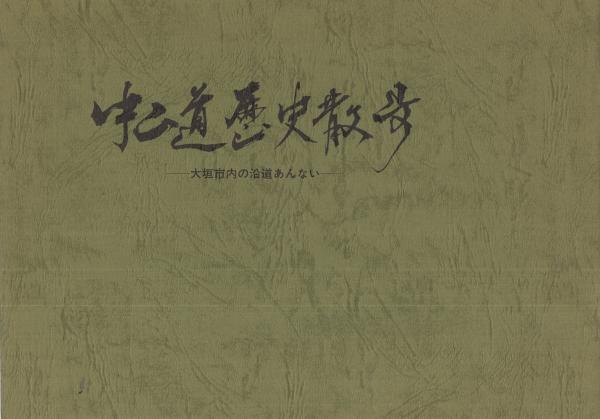 中山道歴史散歩
——大垣市内の沿道あんない——